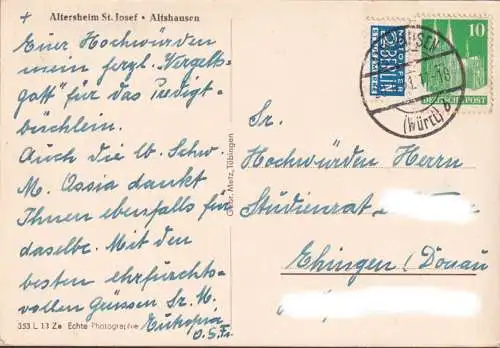 +
Altersheim St. Josef • Altshausen
Euer Hochwürden
mein herzl. "Vergelts-
gott" für das Predigt-
büchlein.
Auch die lb. Schw.
M. Ossia dankt
Ihnen ebenfalls für
daselbe. Mit den
besten ehrfurchts-
vollen Grüssen Sr. M.
Eukopia
O.S.Fr.
353 L 13 Ze Echte Photographie
Gebr. Metz, Tübingen
NOTOPFER
2 BERLIN
STEUERMARKE
10
DEUTSCHE POST
(Württ)
Sr.
Hochwürden Herrn
Studienrat
Ehingen / Donau